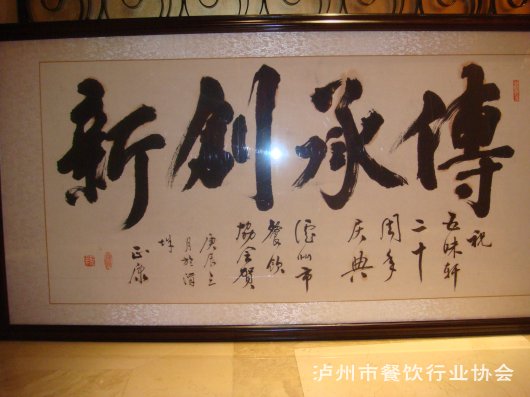 傳承創新
祝
五味轩
二十
周年
庆典
泸州市
餐飲
協会贺
庚辰三
月於酒
城
正康
泸州市餐饮行业协会